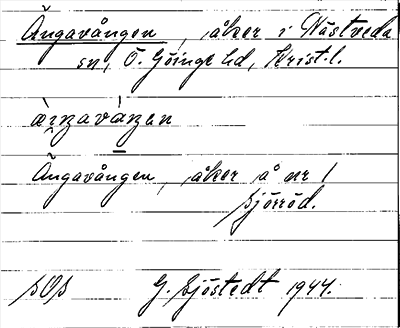 Ängavången, åker i Nästveda
sn, Ö. Göinge hd, Krist. l.
Ängavången, åker å nr 1
Sjöröd.
SOS G. Sjöstedt 1944.